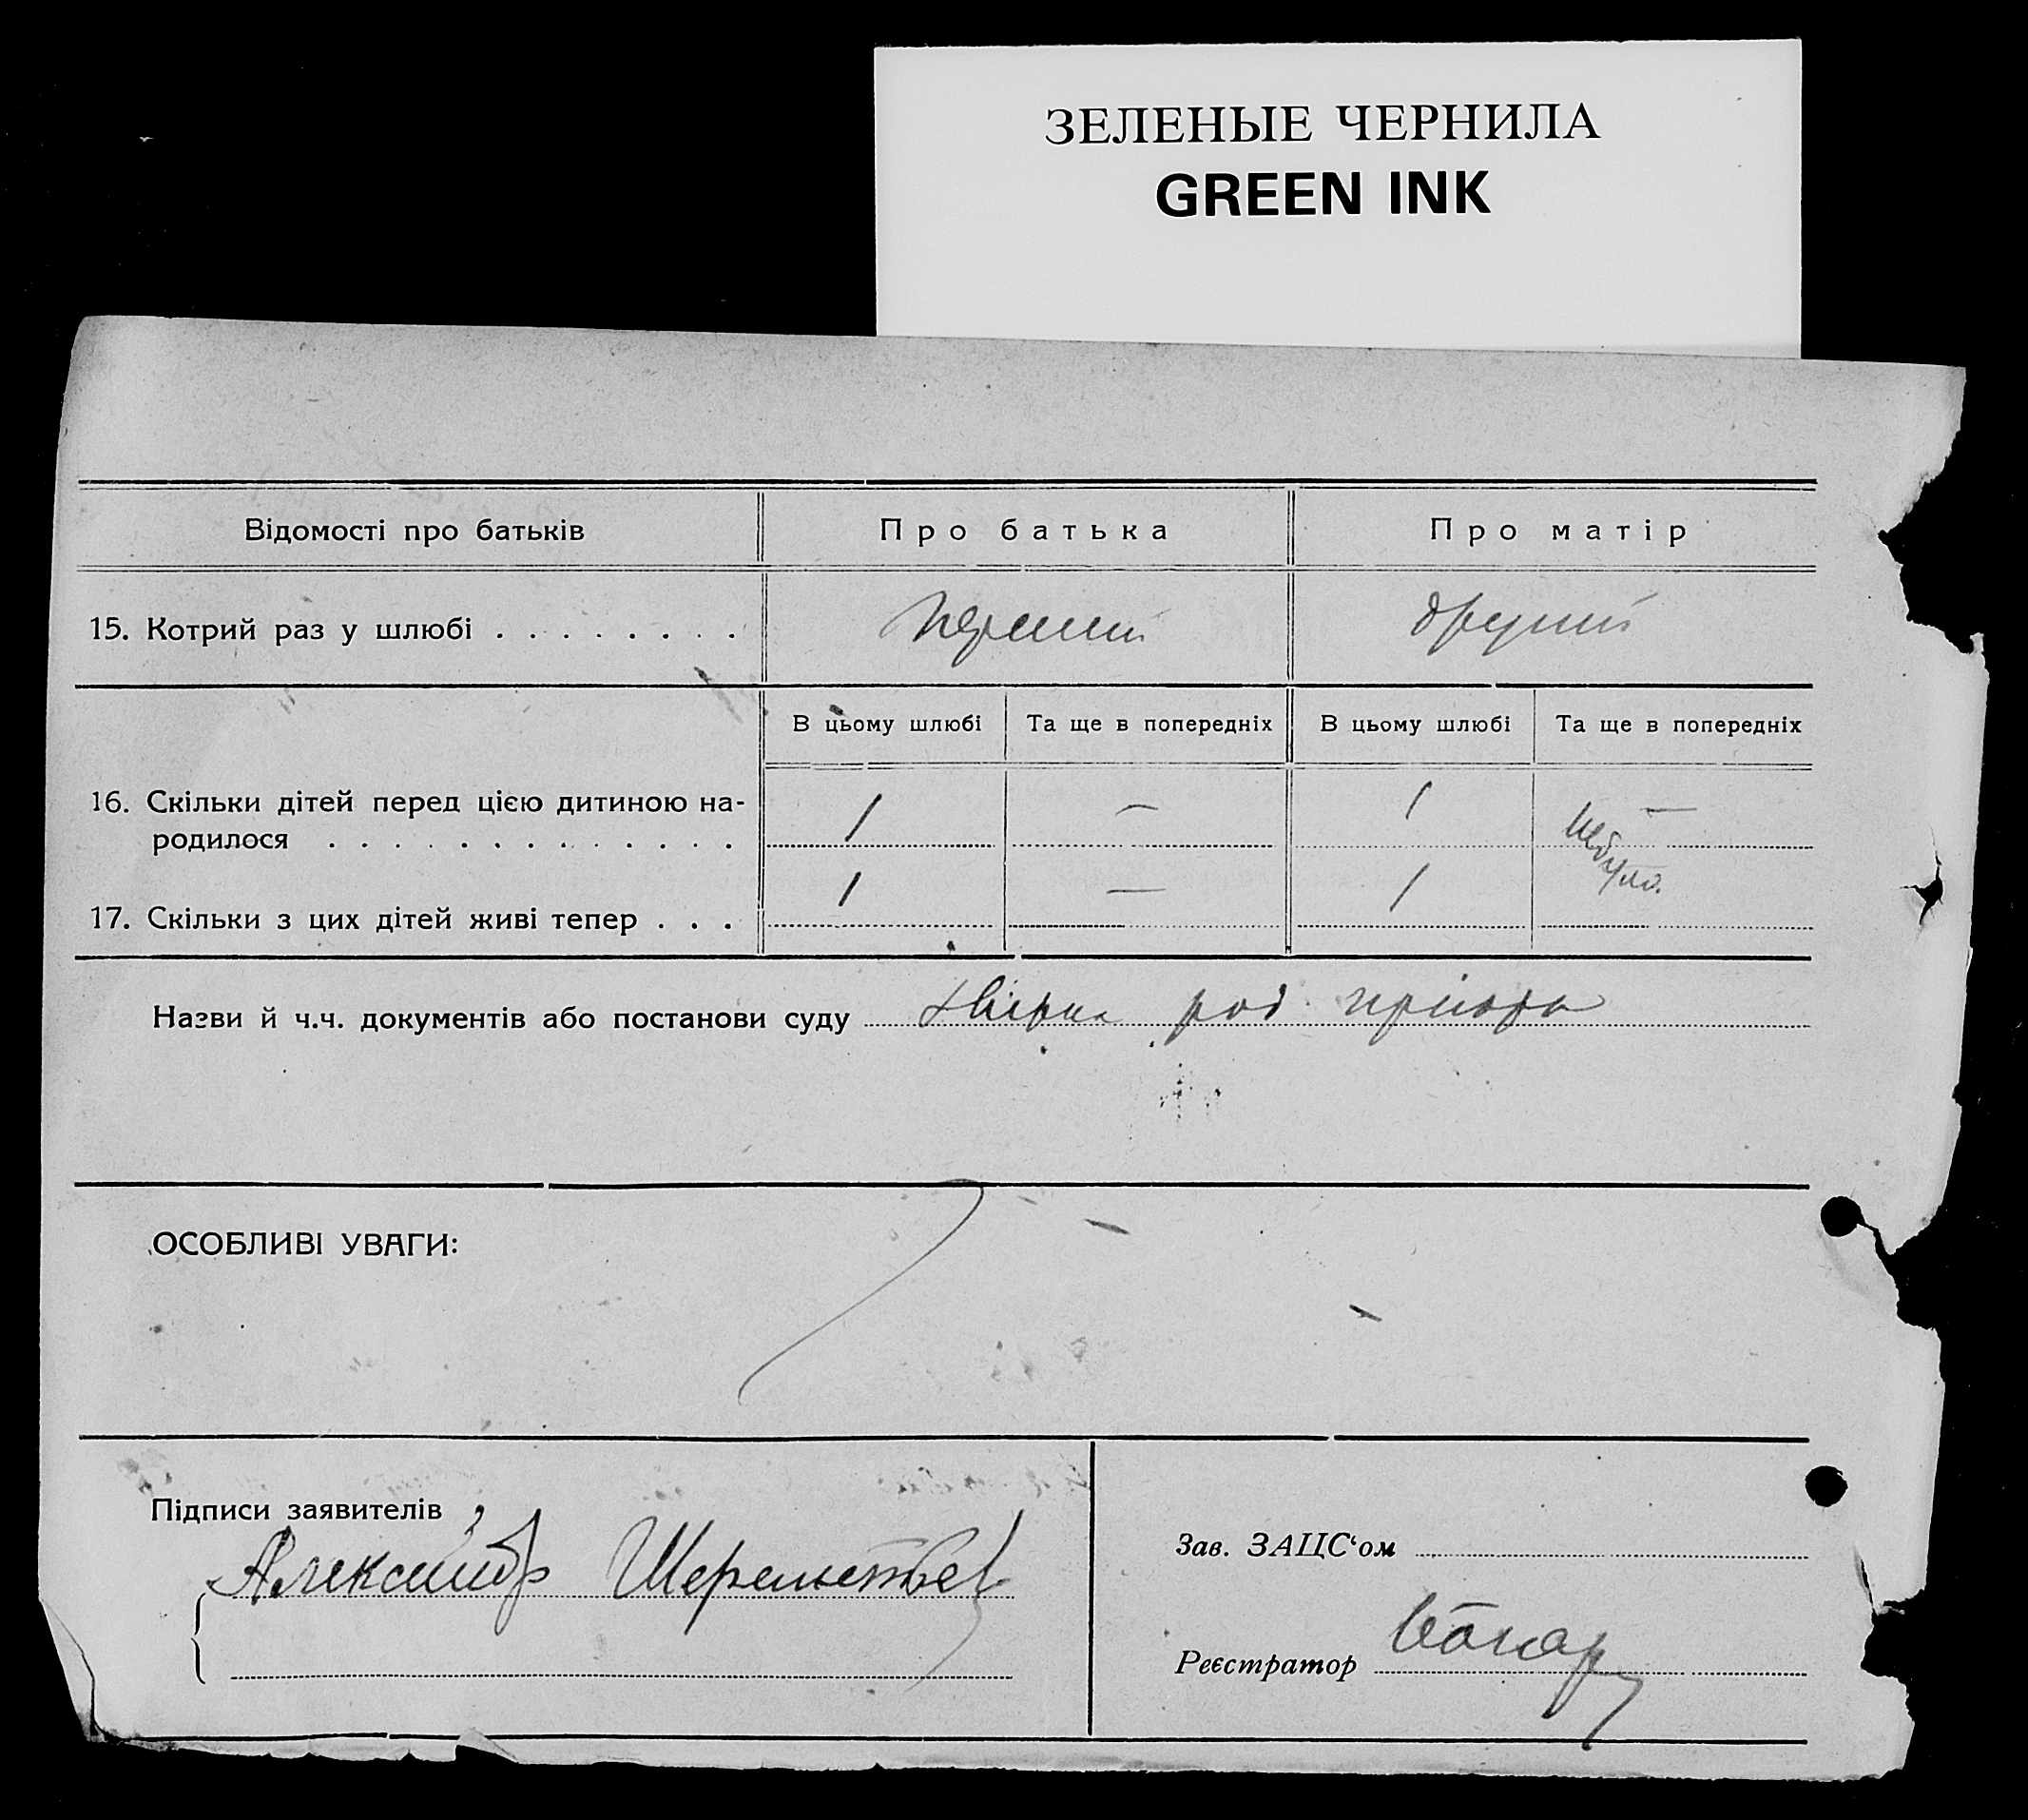 ЗЕЛЕНЫЕ ЧЕРНИЛА
GREEN INK
Відомості про батьків Про батька Про матір
15. Котрий раз у шлюбі . . . . . . . . перший другий
В цьому шлюбі Та ще в попередніх В цьому шлюбі Та ще в попередніх
16. Скільки дітей перед цією дитиною на-
родилося . . . . . . . . . . . . . 1 — 1 —
не було.
17. Скільки з цих дітей живі тепер . . . 1 — 1
Назви й ч.ч. документів або постанови суду род
ОСОБЛИВІ УВАГИ:
Підписи заявителів
Александр Шереметьев
Зав. ЗАЦС‘ом
Реєстратор